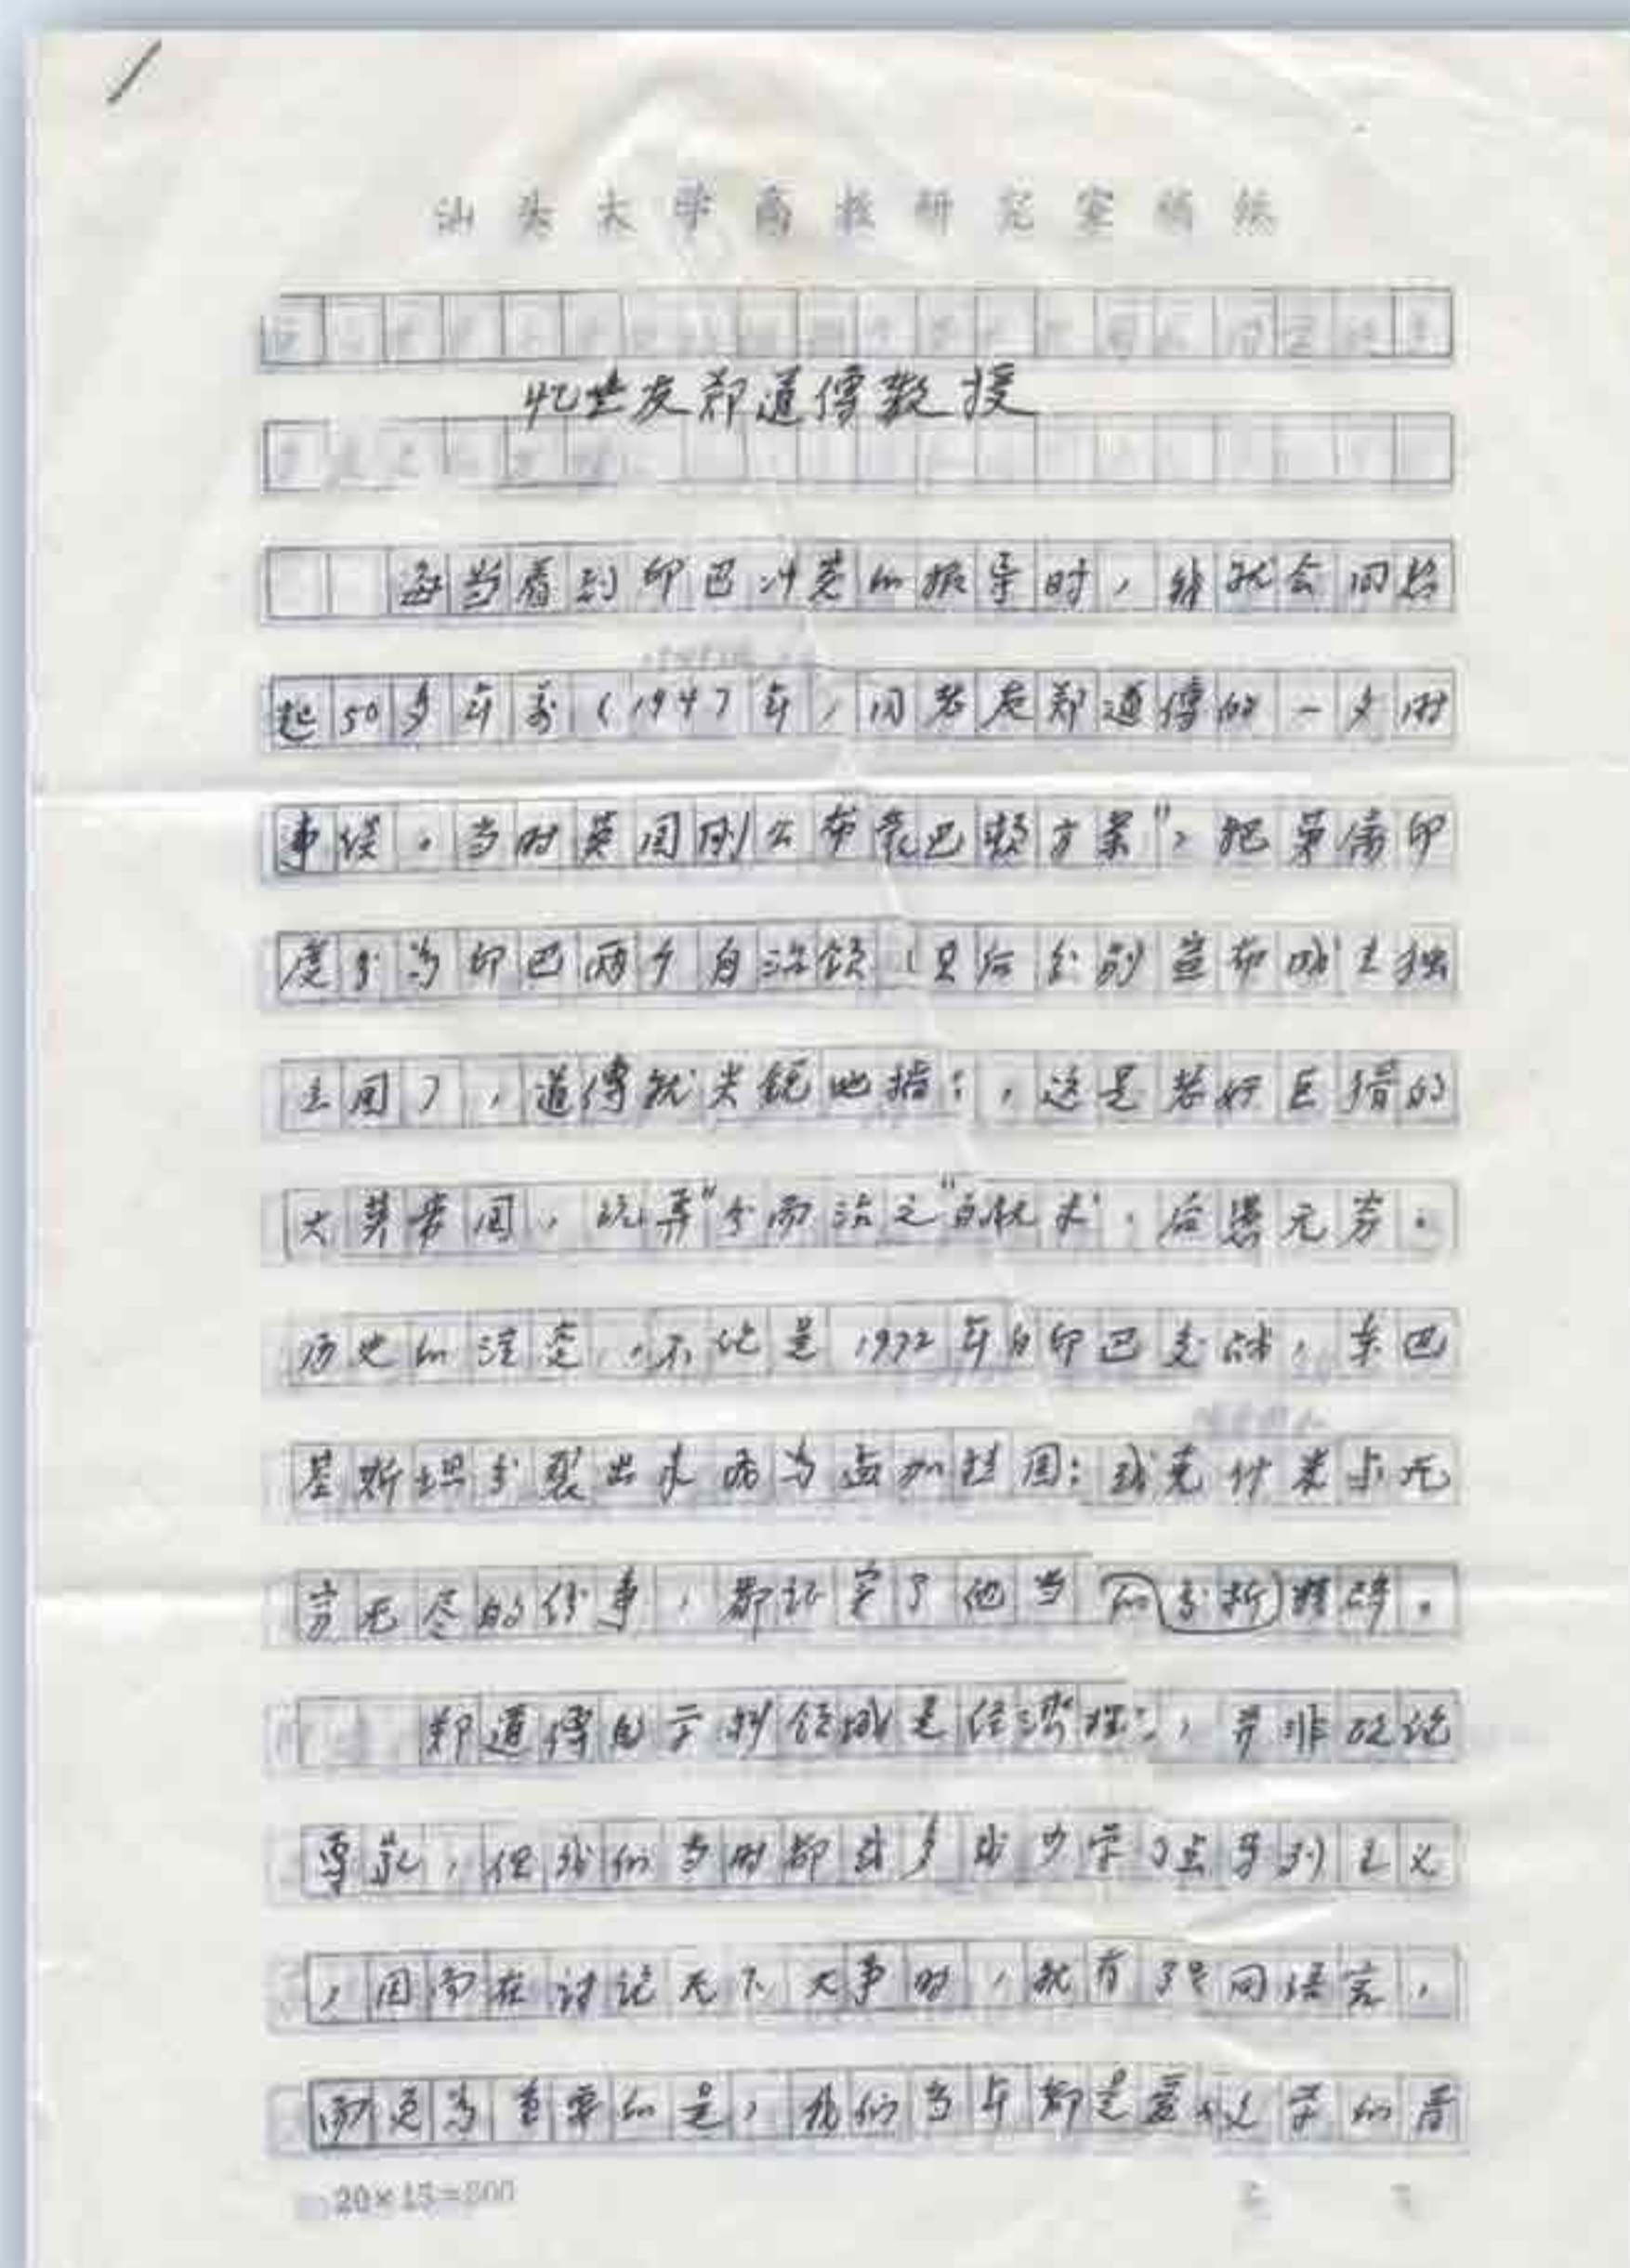 汕头大学高教研究室稿纸
忆老友郑道傳教授
每当看到印巴冲突的报导时，我就会回想
起50多年前（1947年，同老友郑道傳的一夕时
事谈。当时英国刚公布蒙巴顿方案"，把英属印
度分为印巴两个自治领（只后分别宣布成立独
立国），道傳就尖锐地指：，这是老奸巨猾的
大英帝国，玩弄"分而治之"的权术，后患无穷。
历史的演变，，不论是1972年的印巴交战，东巴
基斯坦分裂出来成为孟加拉国；或克什米尔无
穷无尽的战事，都证实了他当的分析精辟。
郑道傳的学科领域是经济，并非政论
专家，但我们当时都或多或少学习点马列主义
，因而在讨论天下大事时，就有了共同语言，
而更为重要的是，我们当年都是爱好文学的青
20×15=300